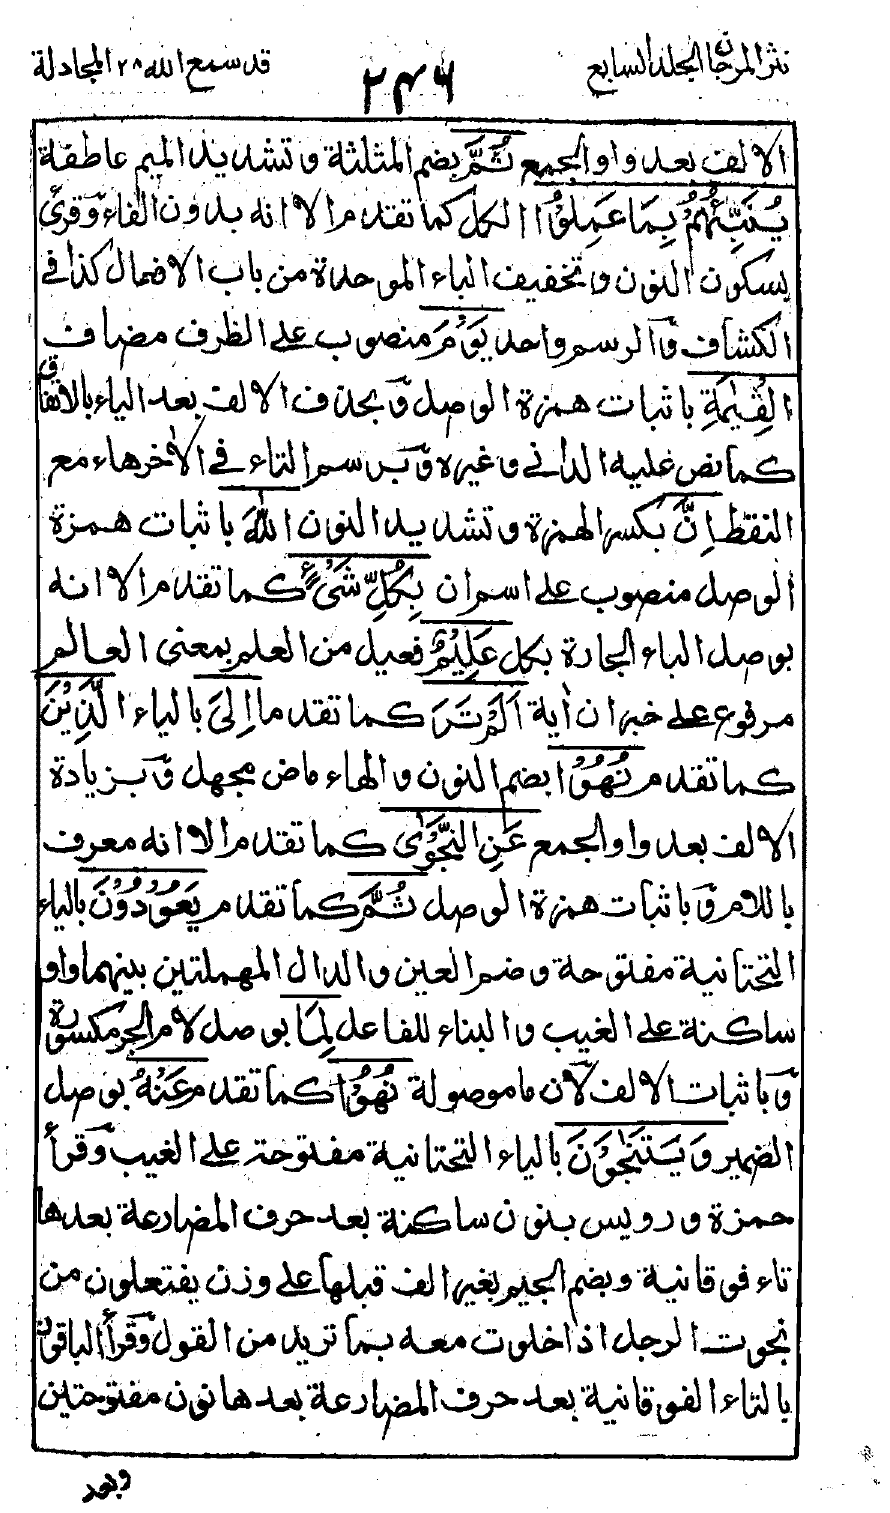 نثر المرجان الجلد السابع
٢٤٦
قد سمع الله ٢٨ المجادلة
الالف بعد واو الجمع ثُمَّ بضم المثلثة وتشديد الميم عاطفة
يُنَبِّئُهُمْ بِمَا عَمِلُوْا الكل كما تقدم الا انه بدون الفاء وقرئ
بسكون النون وتخفيف الباء الموحدة من باب الافعال كذا في
الكشاف والرسم واحد يَوْمَ منصوب على الظرف مضاف
القِيٰمَةِ باثبات همزة الوصل وبحذف الالف بعد الياء بالاتفاق
كما نص عليه الداني وغيره وبرسم التاء في الأخر هاء مع
النقط اِنَّ بكسر الهمزة وتشديد النون اللّٰهَ باثبات همزة
الوصل منصوب على اسم ان بِكُلِّ شَيْءٍ كما تقدم الا انه
بوصل الباء الجارة بكل عَلِيْمٌ فعيل من العلم بمعنى العالم
مرفوع على خبر ان أية اَلَمْ تَرَ كما تقدما اِلَى بالياء الَّذِيْنَ
كما تقدم نُهُوْا بضم النون والهاء ماض مجهل وبزيادة
الالف بعد واو الجمع عَنِ النَّجْوٰى كما تقدم الا انه معرف
باللام وباثبات همزة الوصل ثُمَّ كما تقدم يَعُوْدُوْنَ بالياء
التحتانية مفتوحة وضم العين والدال المهملتين بينهما واو
ساكنة على الغيب والبناء للفاعل لِمَا بوصل لام الجر مكسورة
وباثبات الالف لأن ما موصولة نُهُوْا كما تقدم عَنْهُ بوصل
الضمير وَيَتَنٰجَوْنَ بالياء التحتانية مفتوحة على الغيب وقرأ
حمزة ورويس بنون ساكنة بعد حرف المضارعة بعدها
تاء فوقانية وبضم الجيم بغير الف قبلها على وزن يفتعلون من
نجوت الرجل اذا خلوت معه بما تريد من القول وقرأ الباقون
بالتاء الفوقانية بعد حرف المضارعة بعدها نون مفتوحتين
وبعد